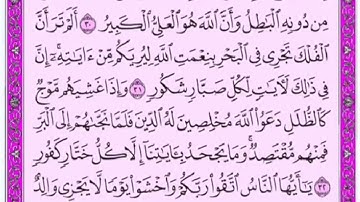 مِن دُونِهِ ٱلْبَٰطِلُ وَأَنَّ ٱللَّهَ هُوَ ٱلْعَلِىُّ ٱلْكَبِيرُ ٣٠ أَلَمْ تَرَ أَنَّ
ٱلْفُلْكَ تَجْرِى فِى ٱلْبَحْرِ بِنِعْمَتِ ٱللَّهِ لِيُرِيَكُم مِّنْ ءَايَٰتِهِۦٓ إِنَّ
فِى ذَٰلِكَ لَءَايَٰتٍ لِّكُلِّ صَبَّارٍ شَكُورٍ ٣١ وَإِذَا غَشِيَهُم مَّوْجٌ
كَٱلظُّلَلِ دَعَوُا۟ ٱللَّهَ مُخْلِصِينَ لَهُ ٱلدِّينَ فَلَمَّا نَجَّىٰهُمْ إِلَى ٱلْبَرِّ
فَمِنْهُم مُّقْتَصِدٌ وَمَا يَجْحَدُ بِـَٔايَٰتِنَآ إِلَّا كُلُّ خَتَّارٍ كَفُورٍ
٣٢ يَٰٓأَيُّهَا ٱلنَّاسُ ٱتَّقُوا۟ رَبَّكُمْ وَٱخْشَوْا۟ يَوْمًا لَّا يَجْزِى وَالِدٌ